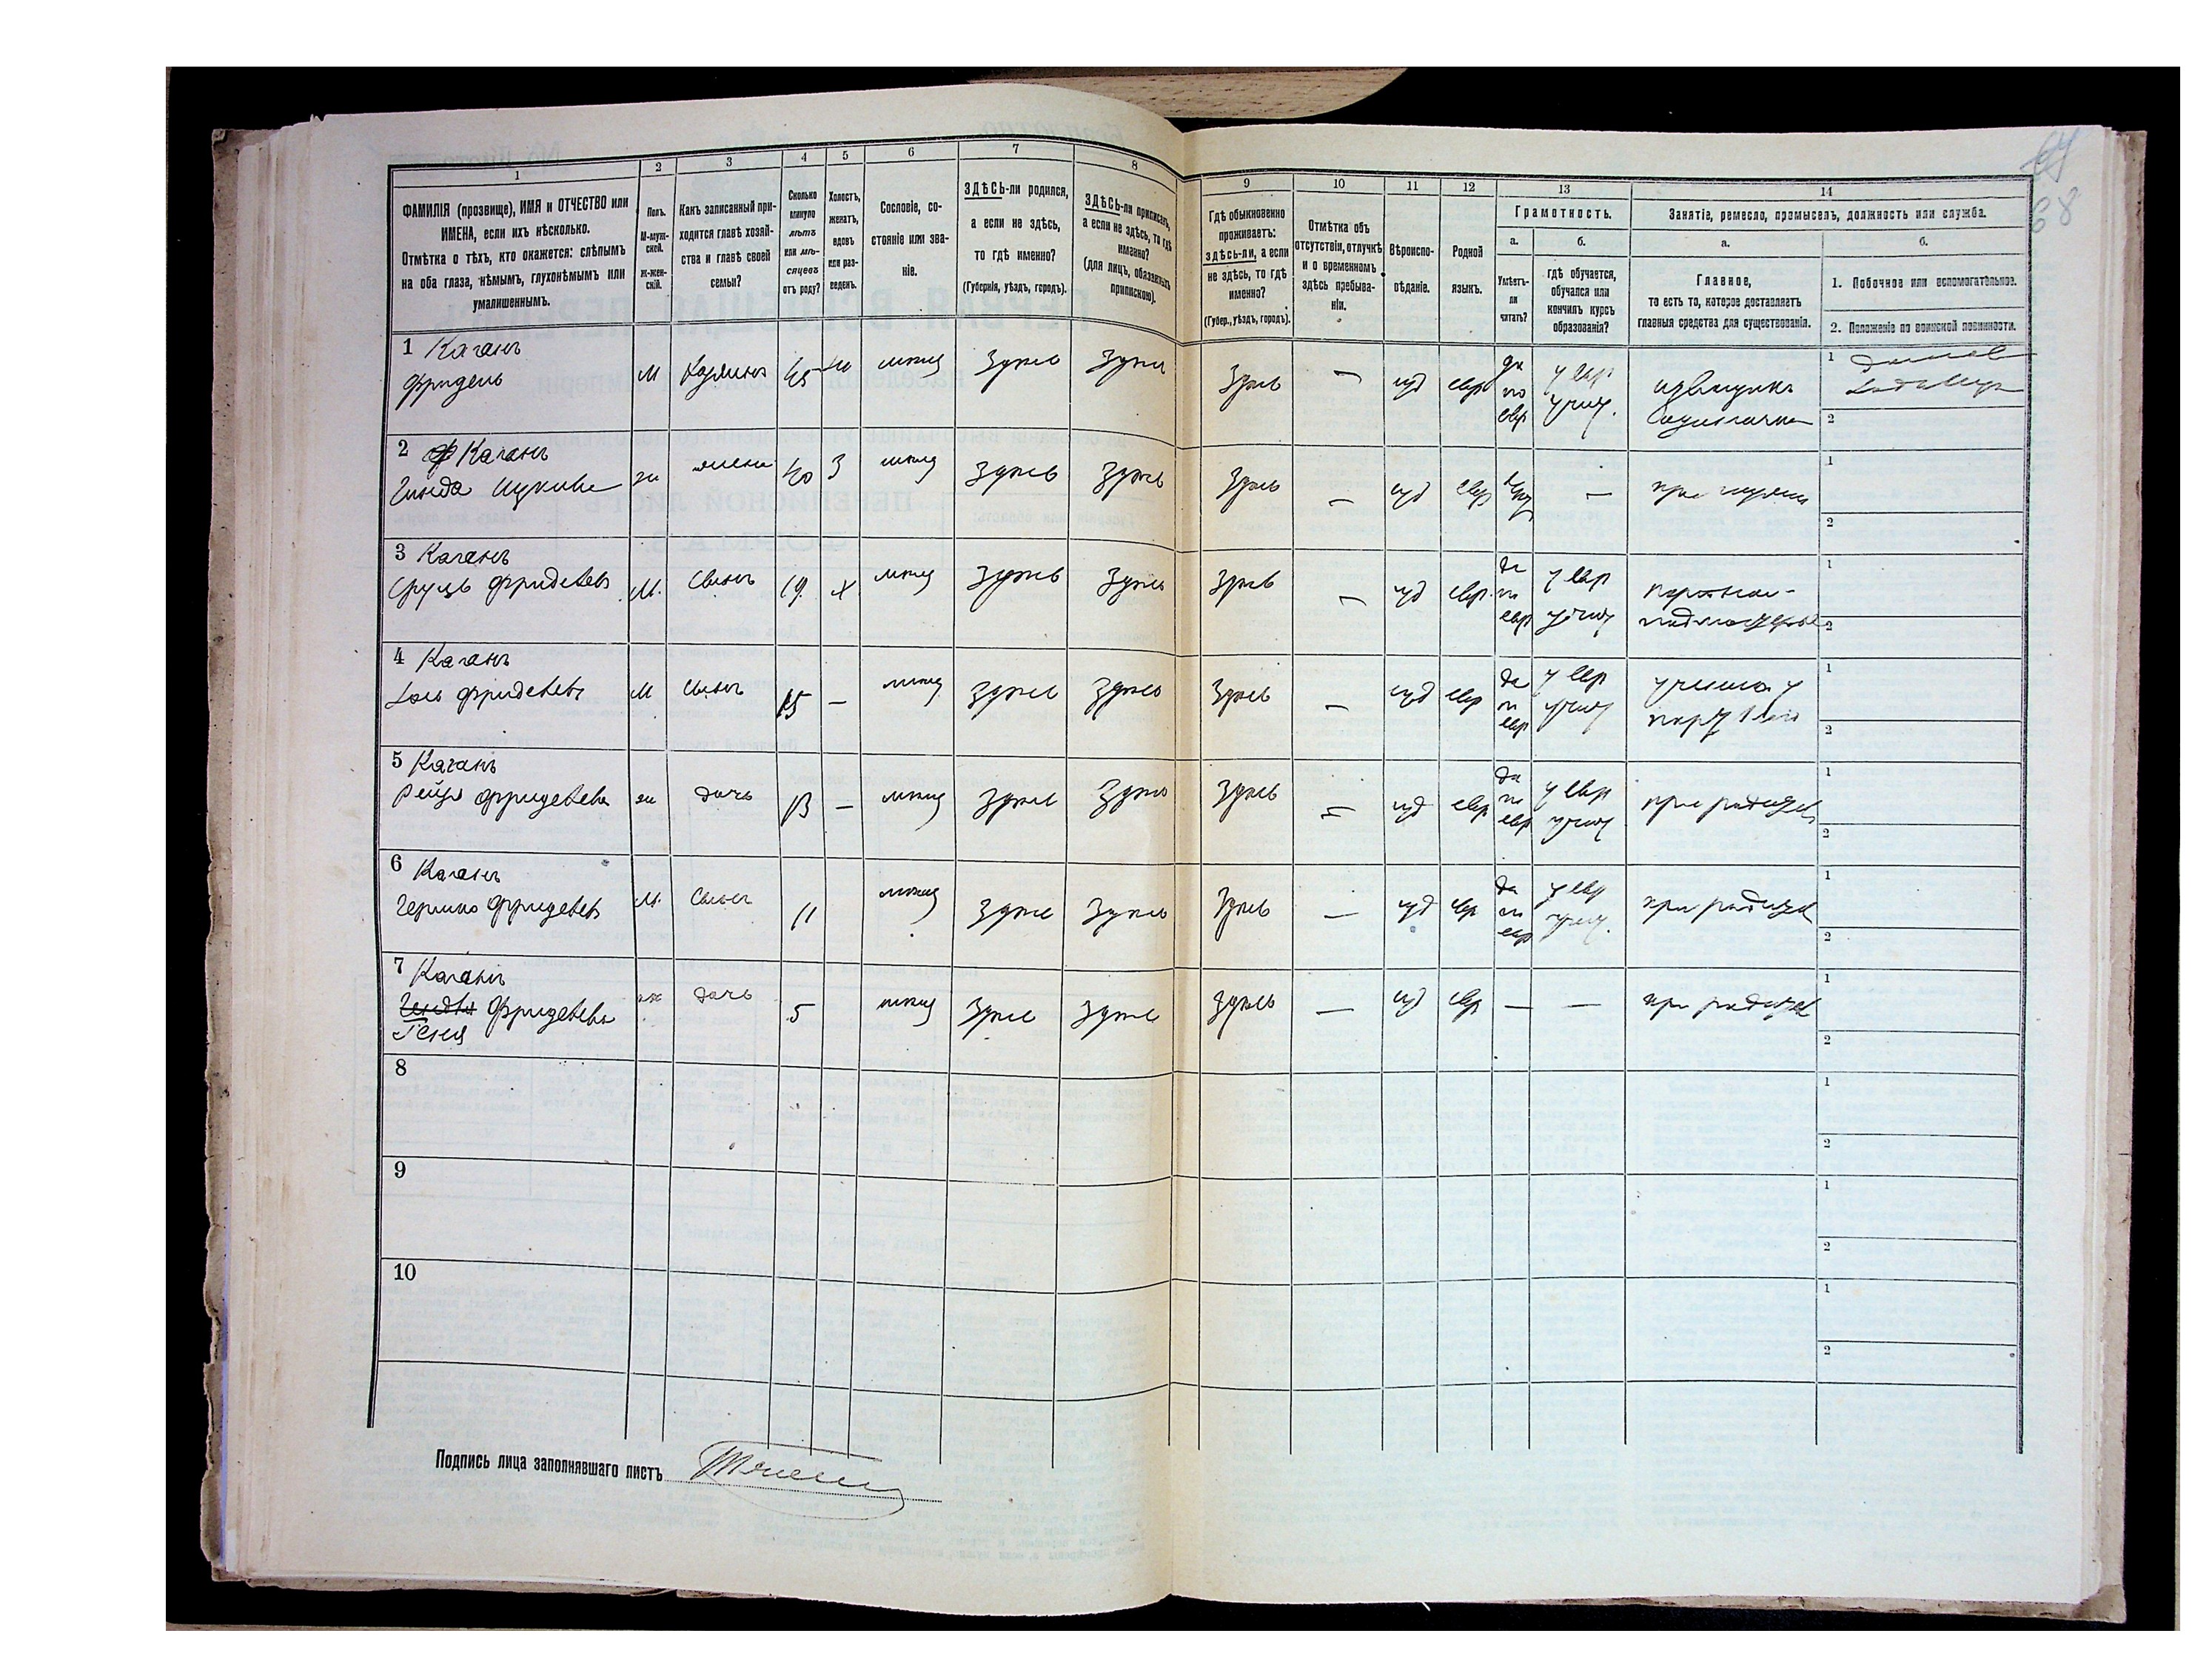 64
68
1 2 3 4 5 6 7 8 9 10 11 12 13 14
ФАМИЛІЯ (прозвище), ИМЯ и ОТЧЕСТВО или
ИМЕНА, если ихъ нѣсколько.
Отмѣтка о тѣхъ, кто окажется: слѣпымъ
на оба глаза, нѣмымъ, глухонѣмымъ или
умалишеннымъ.
Полъ.
М-муж-
ской.
Ж-жен-
скій.
Какъ записанный при-
ходится главѣ хозяй-
ства и главѣ своей
семьи?
Сколько
минуло
лѣтъ
или мѣ-
сяцевъ
отъ роду?
Холостъ,
женатъ,
вдовъ
или раз-
веденъ.
Сословіе, со-
стояніе или зва-
ніе.
ЗДѢСЬ-ли родился,
а если не здѣсь,
то гдѣ именно?
(Губернія, уѣздъ, городъ).
ЗДѢСЬ-ли приписанъ,
а если не здѣсь, то гдѣ
именно?
(для лицъ, обязанныхъ
припискою).
Гдѣ обыкновенно
проживаетъ:
здѣсь-ли, а если
не здѣсь, то гдѣ
именно?
(Губер., уѣздъ, городъ).
Отмѣтка объ
отсутствіи, отлучкѣ
и о временномъ
здѣсь пребыва-
ніи.
Вѣроиспо-
вѣданіе.
Родной
языкъ.
Грамотность.
а. б.
Умѣетъ-
ли
читать?
гдѣ обучается,
обучался или
кончилъ курсъ
образованія?
Занятіе, ремесло, промыселъ, должность или служба.
а. б.
Главное,
то есть то, которое доставляетъ
главныя средства для существованія.
1. Побочное или вспомогательное.
2. Положеніе по воинской повинности.
1 Каганъ
Фридель М Хозяинъ 45 мѣщ Здѣсь Здѣсь Здѣсь — іуд евр да по евр у евр учит. извощикъ
1
2
2 Каганъ
Гинда жена 40 З мѣщ Здѣсь Здѣсь Здѣсь — іуд евр — при мужѣ
1
2
3 Каганъ
Фриделевъ М. Сынъ 19 х мѣщ Здѣсь Здѣсь Здѣсь — іуд евр. да по евр у евр учит
1
2
4 Каганъ
Фриделевъ М Сынъ 15 — мѣщ Здѣсь Здѣсь Здѣсь — іуд евр да по евр у евр учит
1
2
5 Каганъ
Рейзя Фриделева ж дочь 13 — мѣщ Здѣсь Здѣсь Здѣсь — іуд евр да по евр у евр учит при родител
1
2
6 Каганъ
Гершко Фриделевъ М. Сынъ 11 мѣщ Здѣсь Здѣсь Здѣсь — іуд евр да по евр у евр учит. при родител
1
2
7 Каганъ
Фриделева ж дочь 5 мѣщ Здѣсь Здѣсь Здѣсь — іуд евр — — при родител
Геня
1
2
8
1
2
9
1
2
10
1
2
Подпись лица заполнявшаго листъ